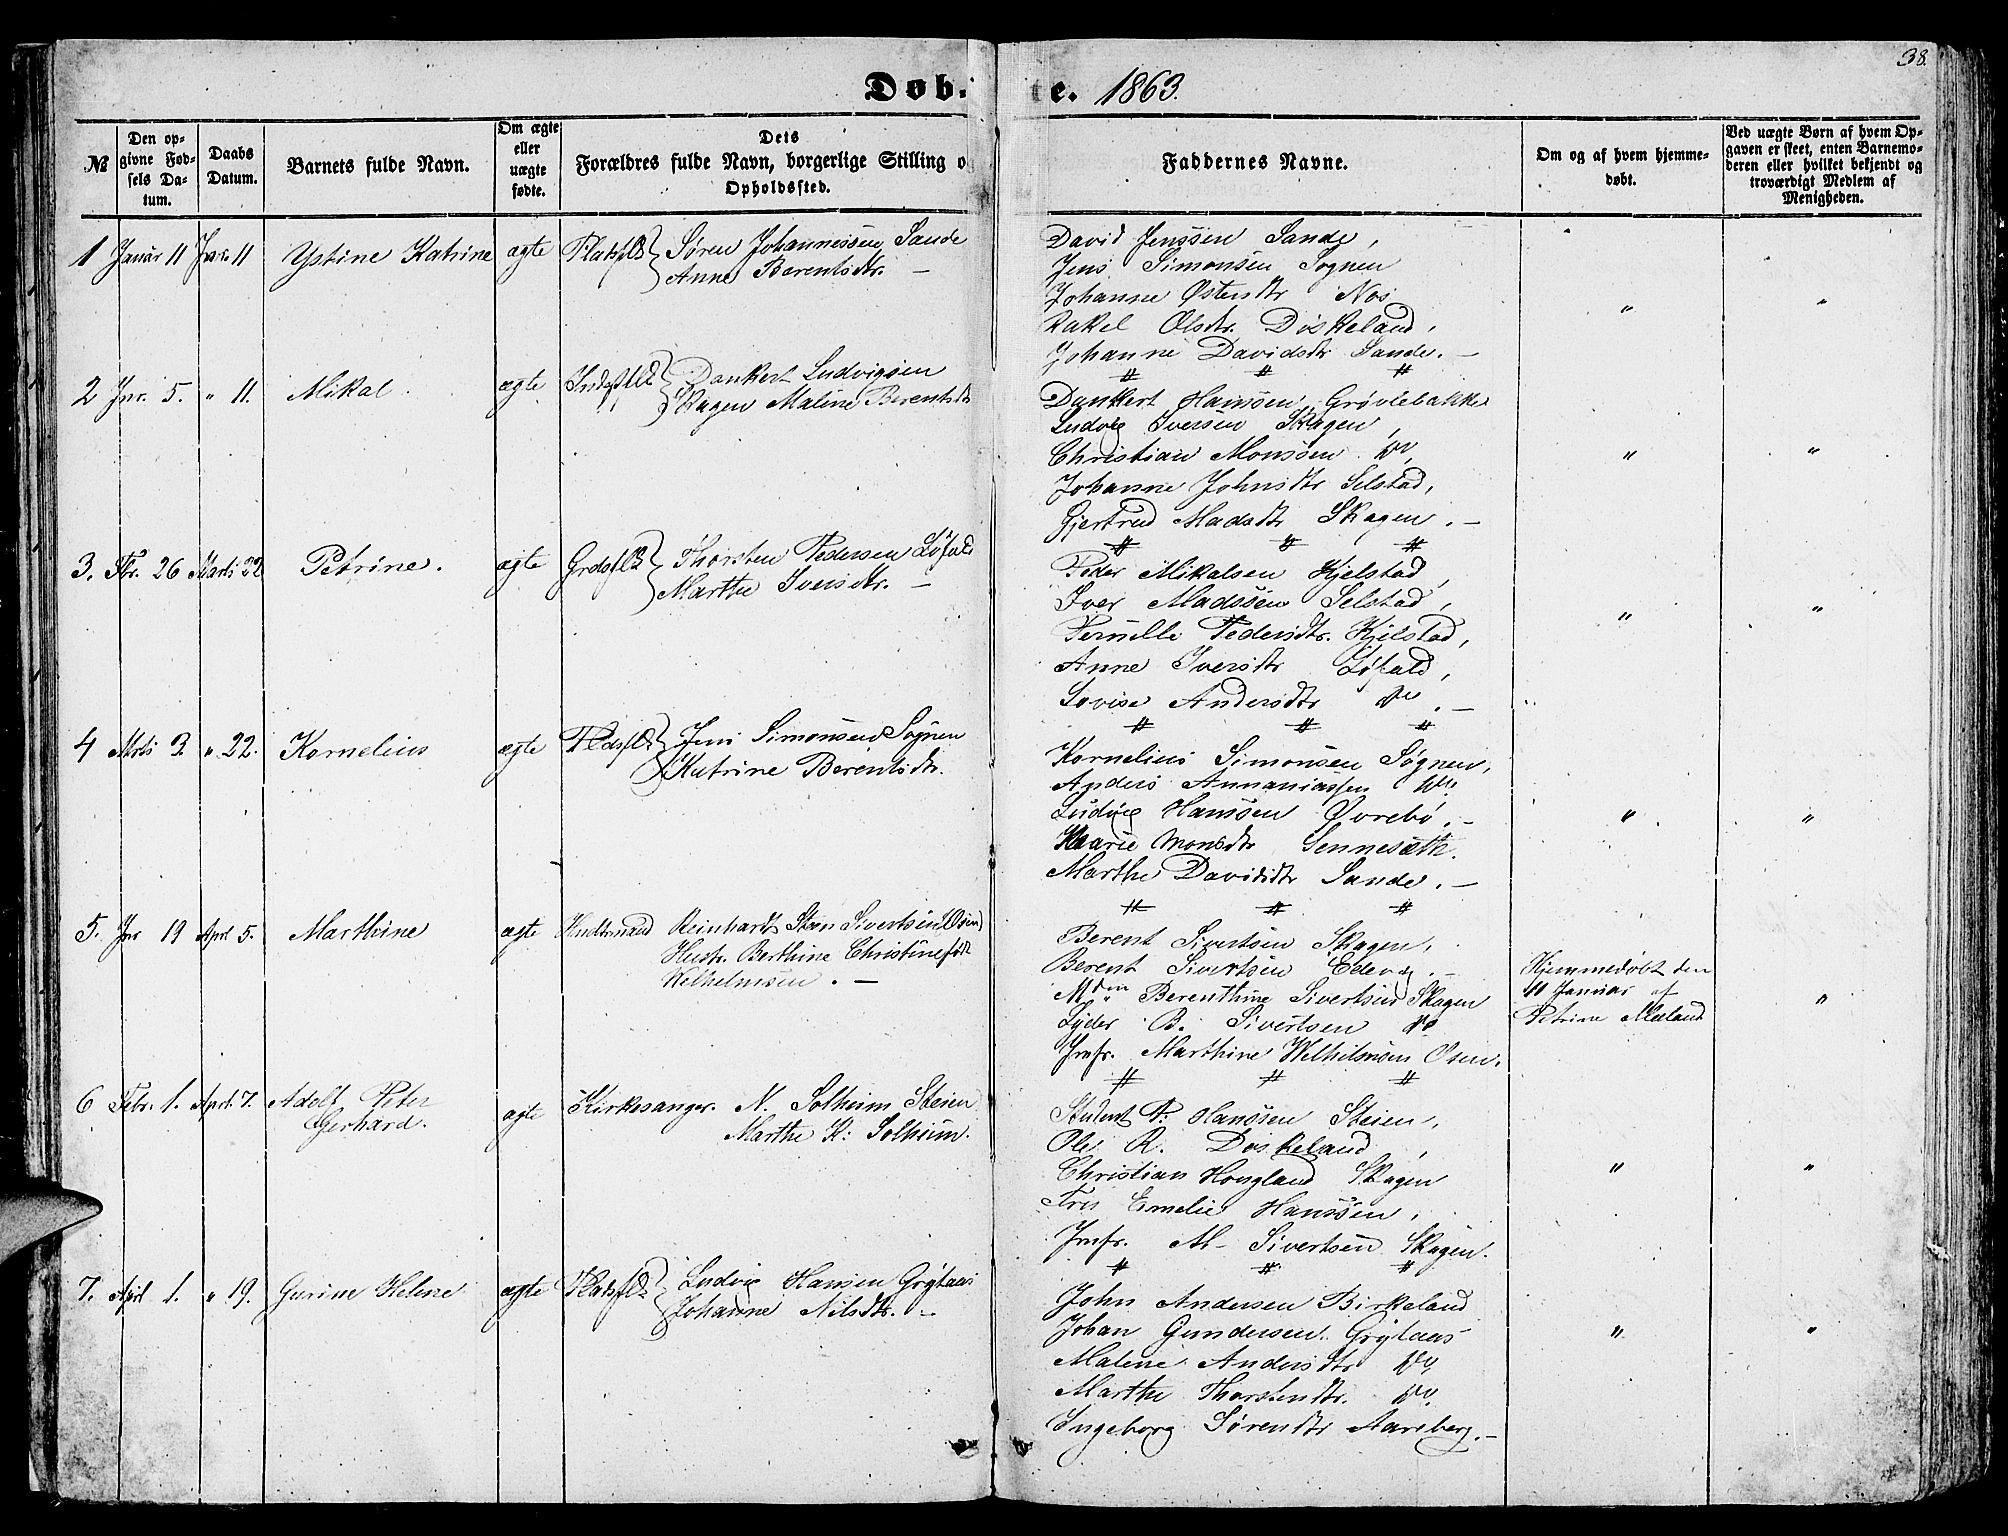 38.
Døb.te. 1863.
№
Den op-
givne Fød-
sels Da-
tum.
Daabs
Datum.
Barnets fulde Navn.
Om ægte
eller
uægte
fødte.
Dets
Forældres fulde Navn, borgerlige Stilling o
Opholdssted.
Faddernes Navne.
Om og af hvem hjemme-
døbt.
Ved uægte Børn af hvem Op-
gaven er skeet, enten Barnemo-
deren eller hvilket bekjendt og
troværdigt Medlem af
Menigheden.
1 Januar 11 Jnr. 11 Ystine Katrine ægte Pladsflk Søren Johannessen Sande
Anne Berentsdtr. —
David Jenssen Sande,
Jens Simonsen Sognen
Johanne Østensdtr Nos
Rakel Olsdtr. Døskeland,
Johanne Davidsdtr Sande. —
" "
2 Jnr. 5. " 11. Mikal. ægte Indsflk Dankert Ludvigsen
Skagen Maline Berentsdtr
Dankert Hanssen Grøvlebakke
Ludvig Iversen Skagen,
Christian Monssen do,
Johanne Johnsdtr Selstad,
Gjertrud Madsdtr Skagen. —
" "
3. Fbr. 26 Marts 22 Petrine. ægte Grdsflk Thorsten Pedersen Løfald
Marthe Iversdtr. —
Peder Mikalsen Kjelstad,
Iver Madssen Selstad,
Pernille Pedersdtr. Kjelstad,
Anne Iversdtr Løfald,
Lovise Andersdtr do. —
" "
4 Mrts 3. " 22. Kornelius ægte Pladsflk. Jens Simonsen Sognen
Katrine Berentsdtr.
Kornelius Simonsen Søgnen,
Anders Annaniassen do.
Ludvig Hanssen Øvrebø. —
Marie Monsdtr Sennesæth.
Marthe Davidsdtr Sande. —
" "
5. Jnr 19 Aprl 5. Marthine ægte Handtmand Reinhardt Steen Sivertsen (Osen)
Hustr. Berthine Christine født
Welhelmsen. —
Berent Sivertsen Skagen,
Berent Sivertsen Edevg. —
Mdm Berenthine Sivertsen Skagen
Lyder B. Sivertsen do
Jmfr. Marthine Welhelmsen Osen.
Hjemmedøbt den
11 Januar af
Petrine Meland
"
6 Febr. 1. Aprl. 7. Adolf Peter
Gerhard.
ægte Kirkesanger. N. Solheim Steien
Marthe K: Solheim.
Student P. Hanssen Steien,
Ole R. Døskeland,
Christian Hougland Skagen
Fru Emelie Hanssen,
Jmfr. M- Sivertsen Skagen.
" "
7. April 1. " 19. Gurine Helene ægte Pladsflk Ludvig Hansen Grytaas
Johanne Nilsdtr. —
John Andersen Birkeland
Johan Gundersen Grytaas
Malene Andersdtr do,
Marthe Thorstensdtr. do.
Ingeborg Sørensdtr Aarberg. —
" "